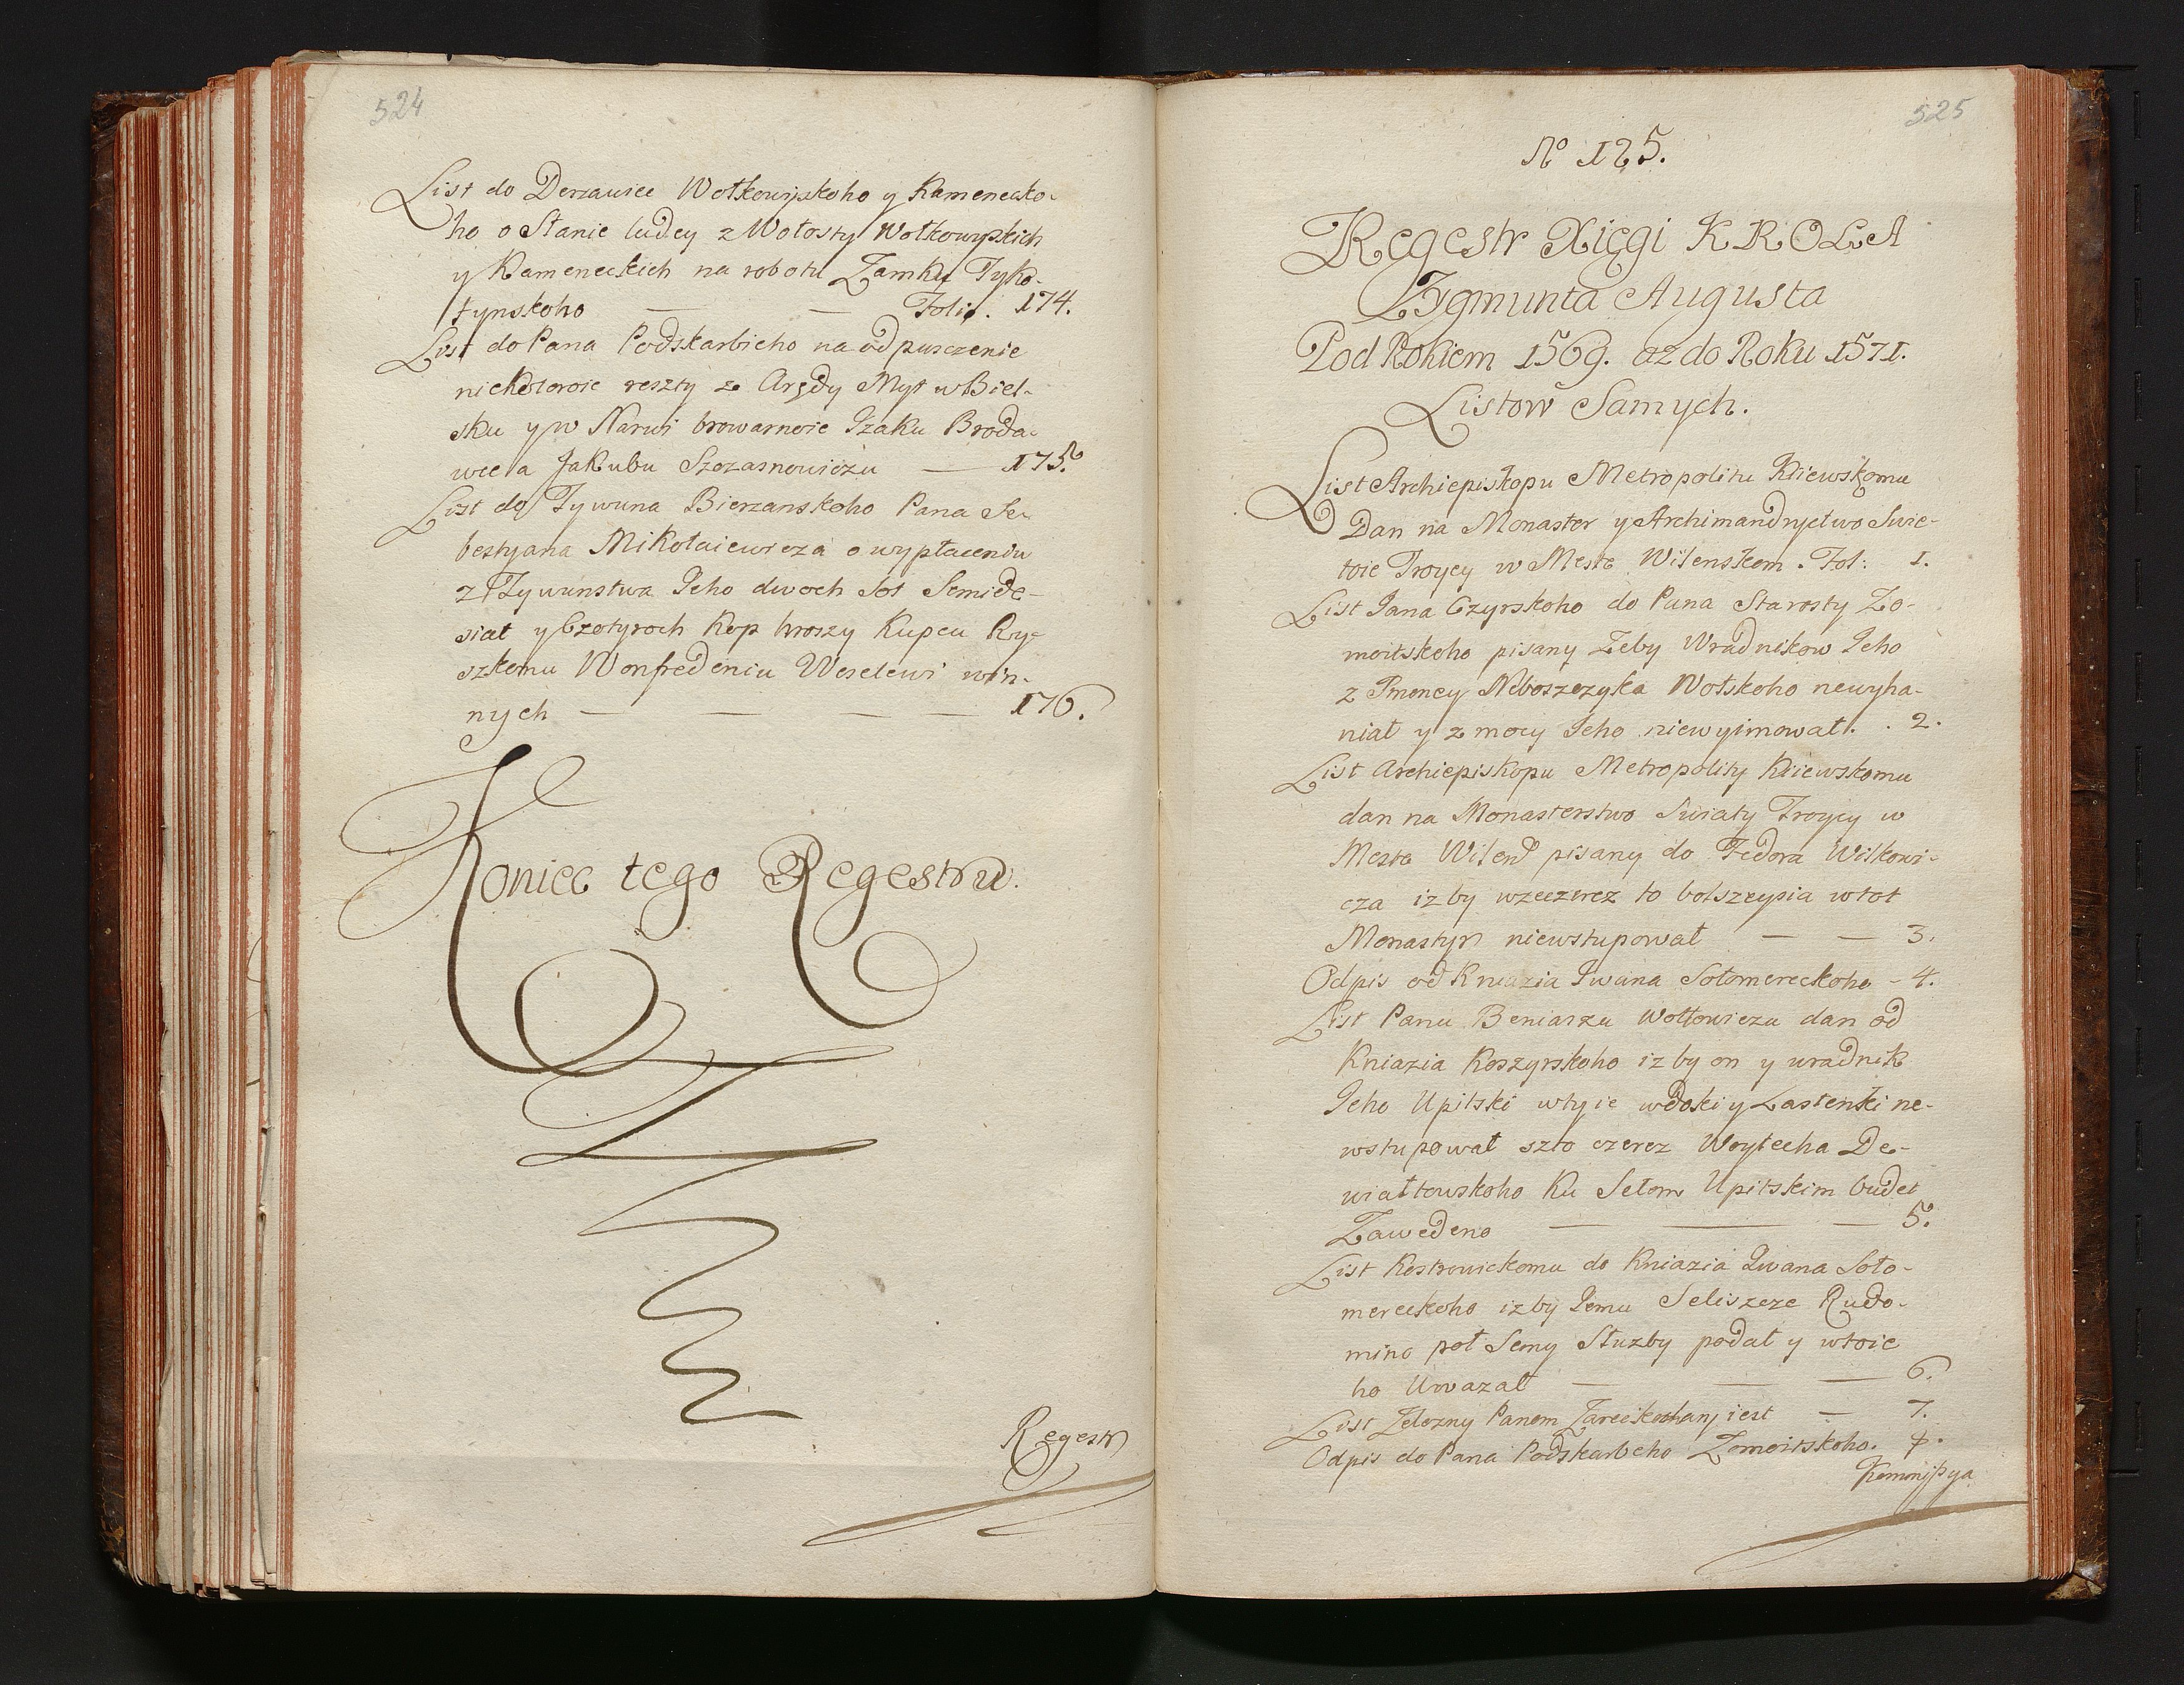 524
List do Derzawice Wołkowyskoho y Kamenecko-
ho o Stanie ludey z Wołosty Wołkowyskich
y Kameneckich na robotu Zamku Tyko-
tynskoho — — Folio. 174.
List do Pana Podskarbieho na odpusczenie
niekotoroie reszty z Arędy Myt w Biel-
sku y w Narwi browarnoie Izaku Broda-
wce a Jakubu Szczasnowiczu — 175.
List do Tywuna Bierzanskoho Pana Se-
bestyana Mikołaiewicza o wypłaceniu
z Tywunstwa Jeho dwoch sot Semide-
siat y Czotyroch Kop hroszy Kupcu Ry-
szkomu Wonfredeniu Weselewi win-
nych — — — — 176.
Koniec tego Regestru.
Regestr
525
No 125.
Regestr Xięgi KROLA
Zygmunta Augusta
Pod Rokiem 1569. az do Roku 1571.
Listow Samych.
List Archiepiskopu Metropolitu Kiiewskomu
Dan na Monaster y Archimandryctwo Swie-
toie Troycy w Meste Wilenskom. Fol: 1.
List Jana Czyrskoho do Pana Starosty Żo-
moitskoho pisany Zeby Wradnikow Jeho
z Jmoney Neboszczyka Wołskoho newyha-
niał y z mocy Jeho niewyimował. . 2.
List Archiepiskopu Metropolity Kiiewskomu
dan na Monasterstwo Swiaty Troycy w
Mesta Wilen pisany do Fedora Wilkowi-
cza izby wzeczerez to bolszeysia wtot
Monastyr niewstupował — — 3.
Odpis od Kniazia Iwana Sołomereckoho - 4.
List Panu Beniaszu Wołłowiczu dan od
Kniazia Koszyrskoho izby on y uradnik
Jeho Upitski wtyie wdoski y Zastenki ne-
wstupował szto czerez Woytecha De-
wiałtowskoho Ku Sełom Upitskim budet
Zawedeno — — — 5.
List Kostrowickomu do Kniazia Iwana Soło-
mereckoho izby Jemu Seliszcze Rudo-
mino poł Semy Służby podał y wtoie
ho Uwazał — — — 6.
List Zelezny Panom Zareckim dany iest — 7.
Odpis do Pana Podskarbeho Zomoitskoho. 8.
Kommissya